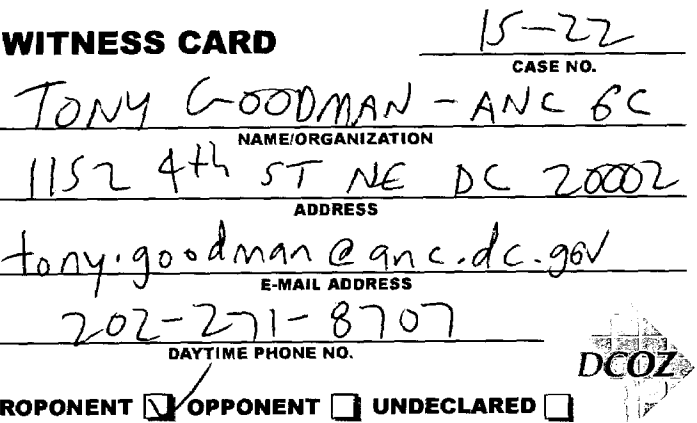 WITNESS CARD
15-22
CASE NO.
TONY GOODMAN - ANC 6C
NAME/ORGANIZATION
1152 4th ST NE DC 20002
ADDRESS
tony.goodman@anc.dc.gov
E-MAIL ADDRESS
202-271-8707
DAYTIME PHONE NO.
DCOZ
ROPONENT OPPONENT UNDECLARED